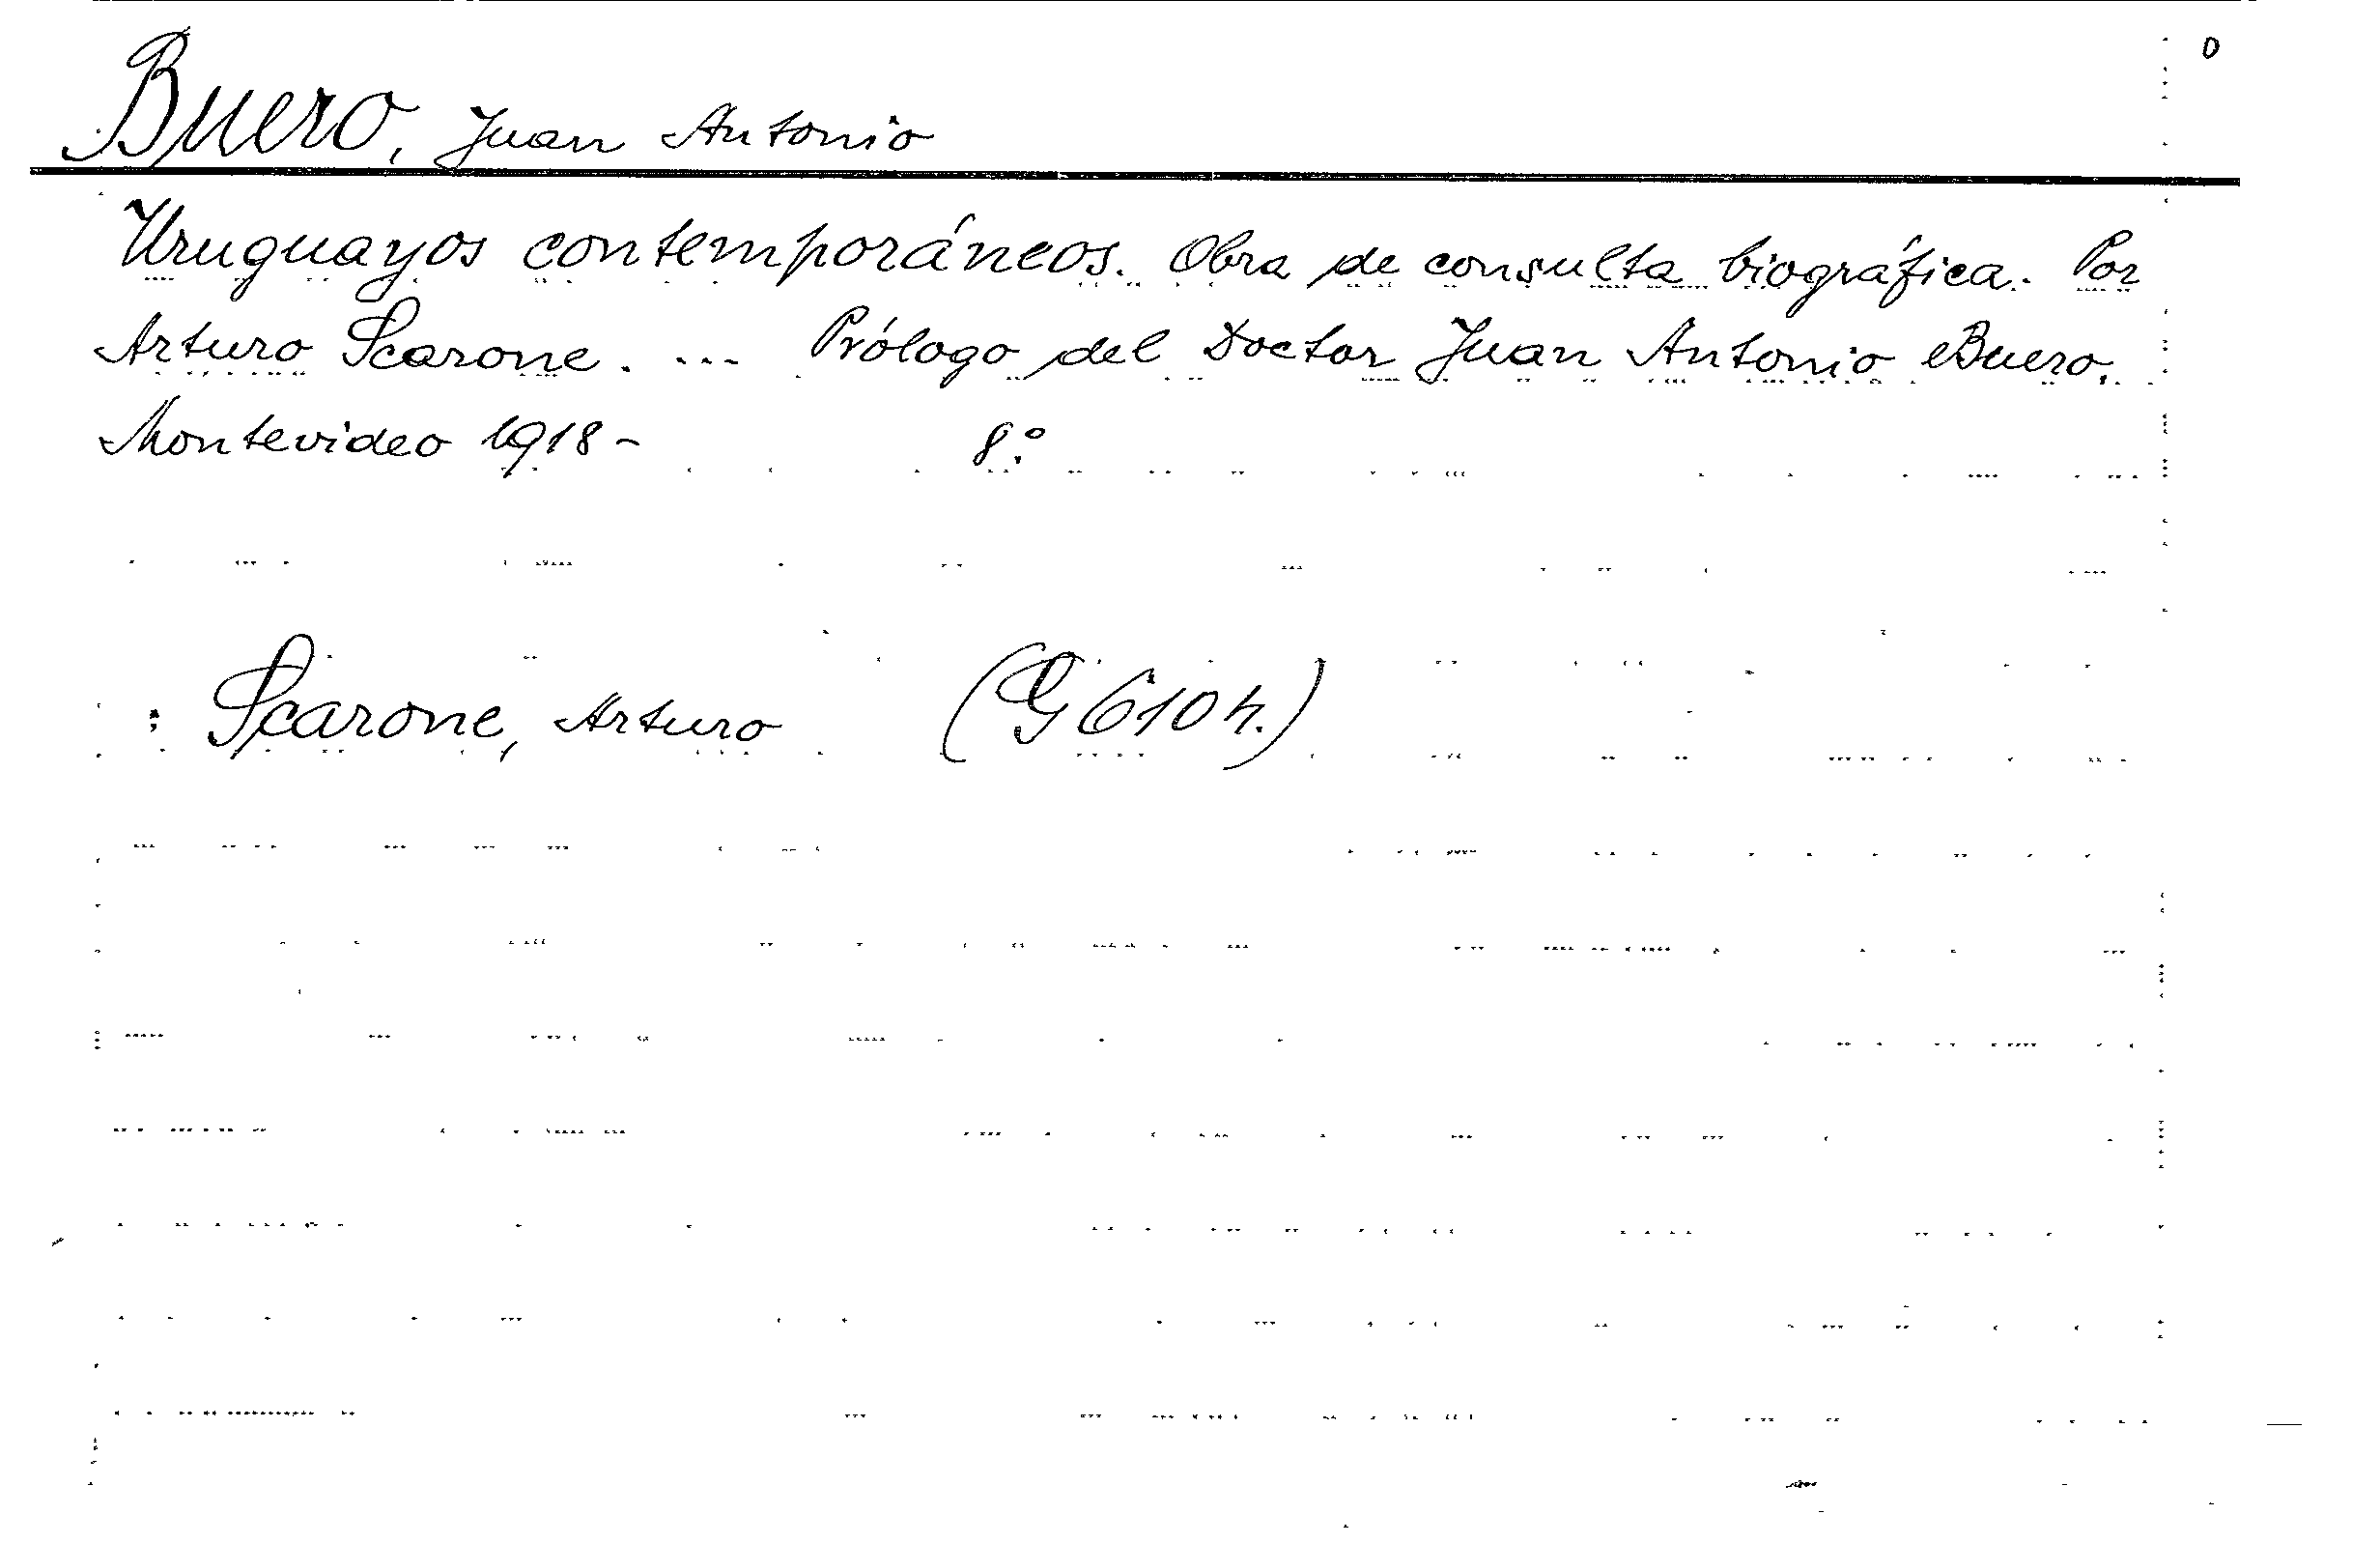 0
Buero, Juan Antonio
Uruguayos contemporáneos. Obra de consulta biográfica. Por
Arturo Scarone. ... Prólogo del Doctor Juan Antonio Buero.
Montevideo 1918- 8:o
: Scarone, Arturo (G 610 h.)